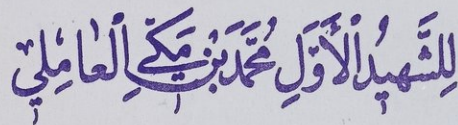 لِلشَّهِيدِ الْأَوَّلِ مُحَمَّدِ بْنِ مَكِّيٍ الْعَامِلِيِّ